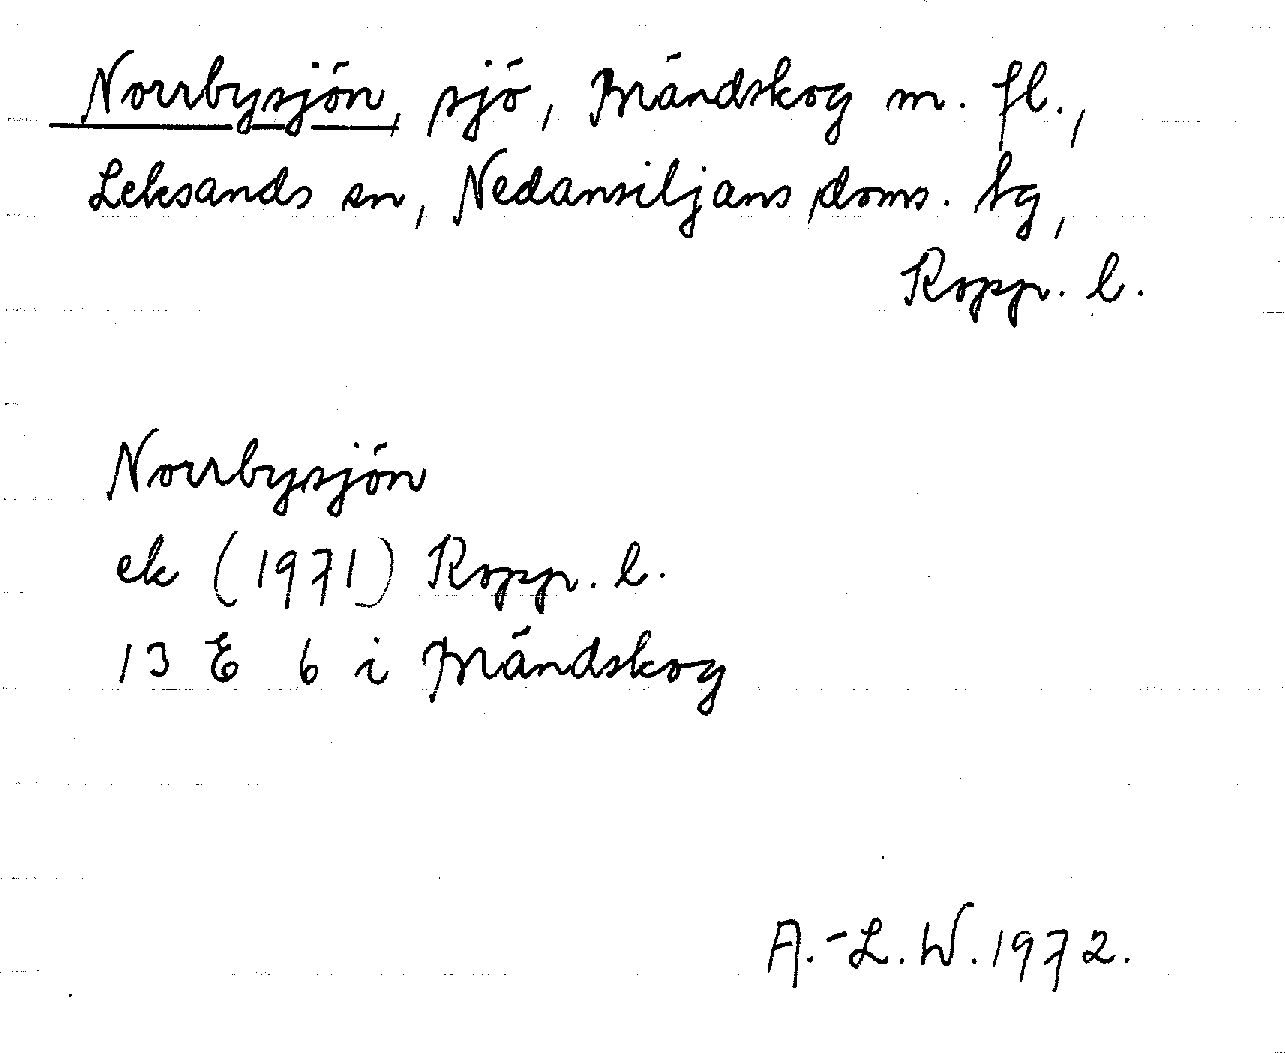 Norrbysjön, sjö, Brändskog m. fl.,
Leksands sn, Nedansiljans doms. tg,
Kopp. l.
Norrbysjön
ek (1971) Kopp. l.
13 E 6 i Brändskog
A.-L. W. 1972.